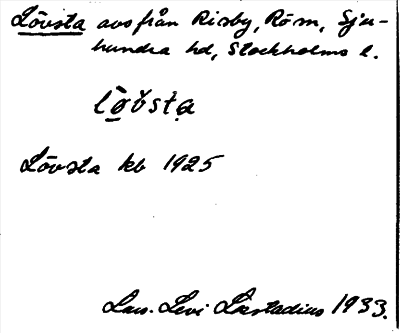 Lövsta avs från Risby, Rö sn, Sju-
hundra hd, Stockholms l.
lö̀vsta
Lövsta kb 1925
Lars Levi Læstadius 1933.